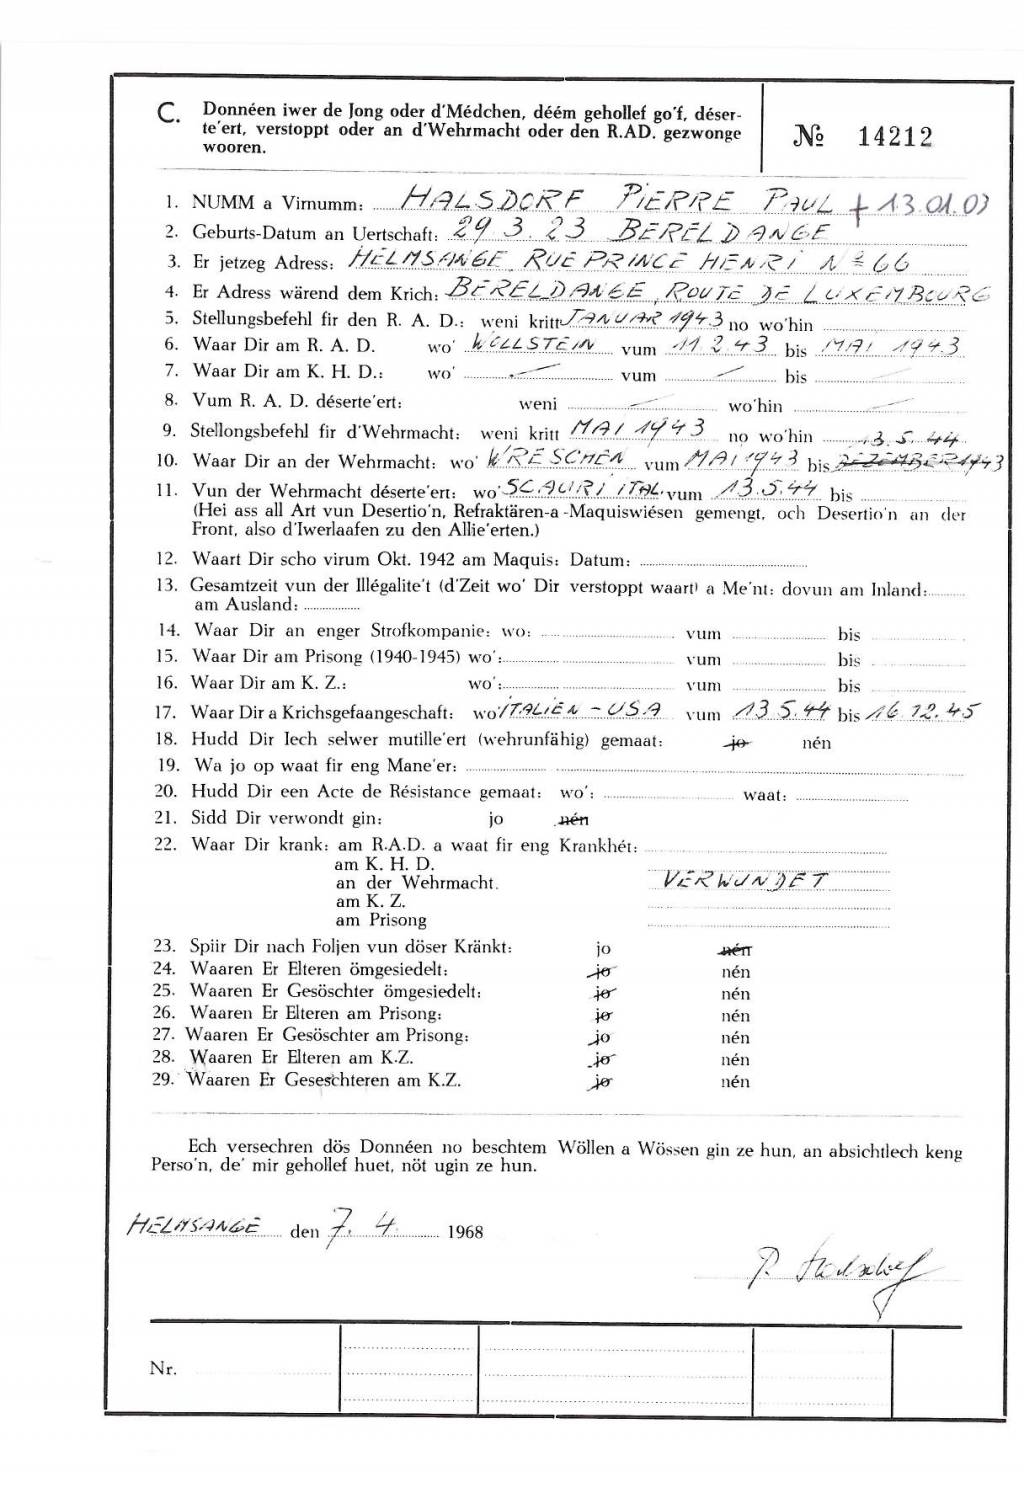 C. Donnéen iwer de Jong oder d'Médchen, déém gehollef go'f, déser-
te'ert, verstoppt oder an d'Wehrmacht oder den R.AD. gezwonge
wooren.
№ 14212
1. NUMM a Virnumm: HALSDORF PIERRE PAUL + 13.01.03
2. Geburts-Datum an Uertschaft: 29 3. 23 BERELDANGE
3. Er jetzeg Adress: HELMSANGE, RUE PRINCE HENRI Nº 66
4. Er Adress wärend dem Krich: BERELDANGE, ROUTE DE LUXEMBOURG
5. Stellungsbefehl fir den R. A. D.: weni kritt JANUAR 1943 no wo'hin
6. Waar Dir am R. A. D. wo' WOLLSTEIN vum 11.2.43 bis MAI 1943
7. Waar Dir am K. H. D.: wo' vum bis
8. Vum R. A. D. déserte'ert: weni wo'hin
9. Stellongsbefehl fir d'Wehrmacht: weni kritt MAI 1943 no wo'hin 13.5.44
10. Waar Dir an der Wehrmacht: wo' WRESCHEN vum MAI 1943 bis DEZEMBER 1943
11. Vun der Wehrmacht déserte'ert: wo' SCAURI ITAL vum 13.5.44 bis
(Hei ass all Art vun Desertio'n, Refraktären-a-Maquiswiésen gemengt, och Desertio'n an der
Front, also d'Iwerlaafen zu den Allie'erten.)
12. Waart Dir scho virum Okt. 1942 am Maquis: Datum:
13. Gesamtzeit vun der Illégalite't (d'Zeit wo' Dir verstoppt waart) a Me'nt: dovun am Inland:
am Ausland:
14. Waar Dir an enger Strofkompanie: wo: vum bis
15. Waar Dir am Prisong (1940-1945) wo': vum bis
16. Waar Dir am K. Z.: wo': vum bis
17. Waar Dir a Krichsgefaangeschaft: wo' ITALIEN - USA vum 13.5.44 bis 16.12.45
18. Hudd Dir Iech selwer mutille'ert (wehrunfähig) gemaat: jo nén
19. Wa jo op waat fir eng Mane'er:
20. Hudd Dir een Acte de Résistance gemaat: wo': waat:
21. Sidd Dir verwondt gin: jo nén
22. Waar Dir krank: am R.A.D. a waat fir eng Krankhét:
am K. H. D.
an der Wehrmacht. VERWUNDET
am K. Z.
am Prisong
23. Spiir Dir nach Foljen vun döser Kränkt: jo nén
24. Waaren Er Elteren ömgesiedelt: jo nén
25. Waaren Er Gesöschter ömgesiedelt: jo nén
26. Waaren Er Elteren am Prisong: jo nén
27. Waaren Er Gesöschter am Prisong: jo nén
28. Waaren Er Elteren am K.Z. jo nén
29. Waaren Er Geseschteren am K.Z. jo nén
Ech versechren dös Donnéen no beschtem Wöllen a Wössen gin ze hun, an absichtlech keng
Perso'n, de' mir gehollef huet, nöt ugin ze hun.
HELMSANGE den 7. 4. 1968
P. Halsdorf
Nr.